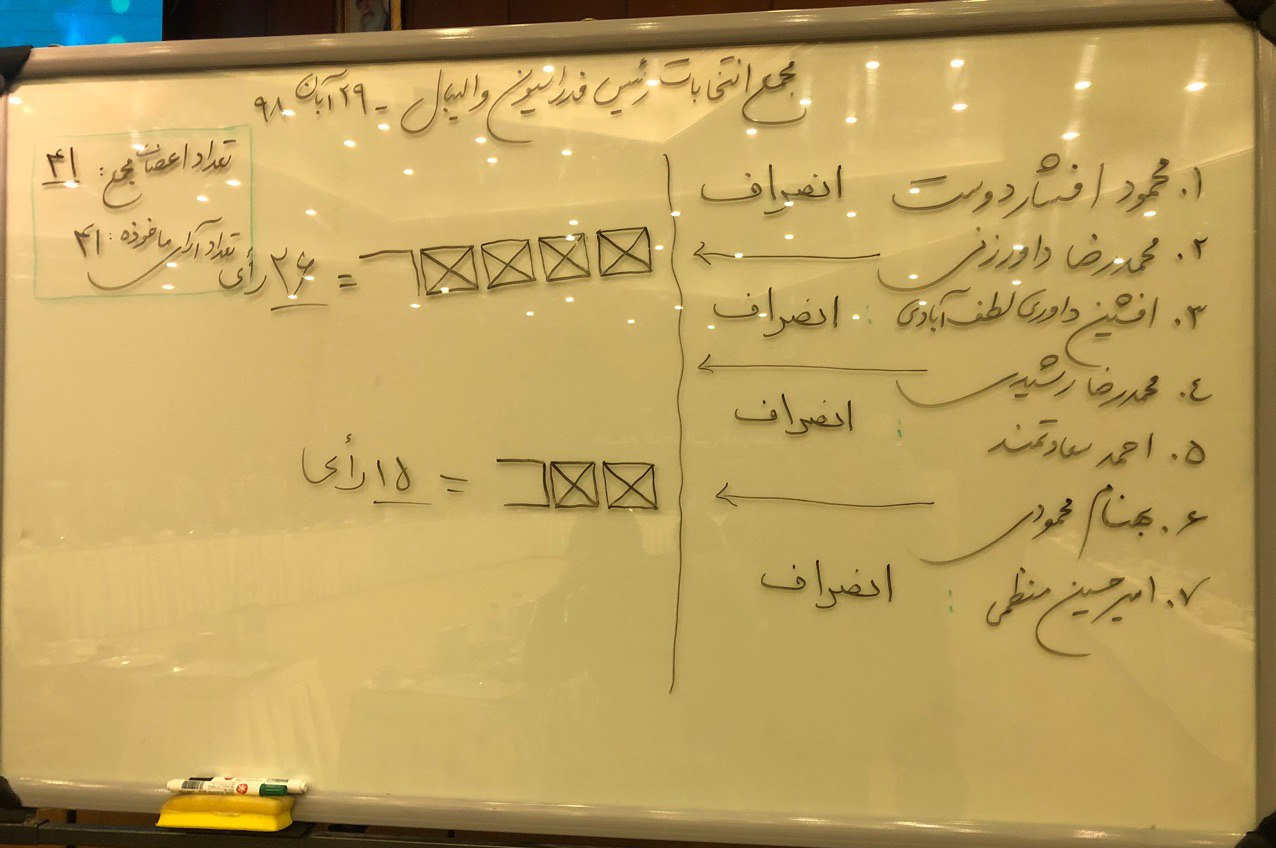 مجمع انتخابات رئیس فدراسیون والیبال - ۲۹ آبان ۹۸
تعداد اعضای مجمع: ۴۱
تعداد آرای ماخوذه: ۴۱
۱. محمود افشاردوست انصراف
۲. محمدرضا داورزنی = ۲۶ رأی
۳. افشین داوری لطف آبادی : انصراف
۴. محمدرضا رشیدی
۵. احمد سعادتمند : انصراف
۶. بهنام محمودی = ۱۵ رأی
۷. امیرحسین منظمی : انصراف